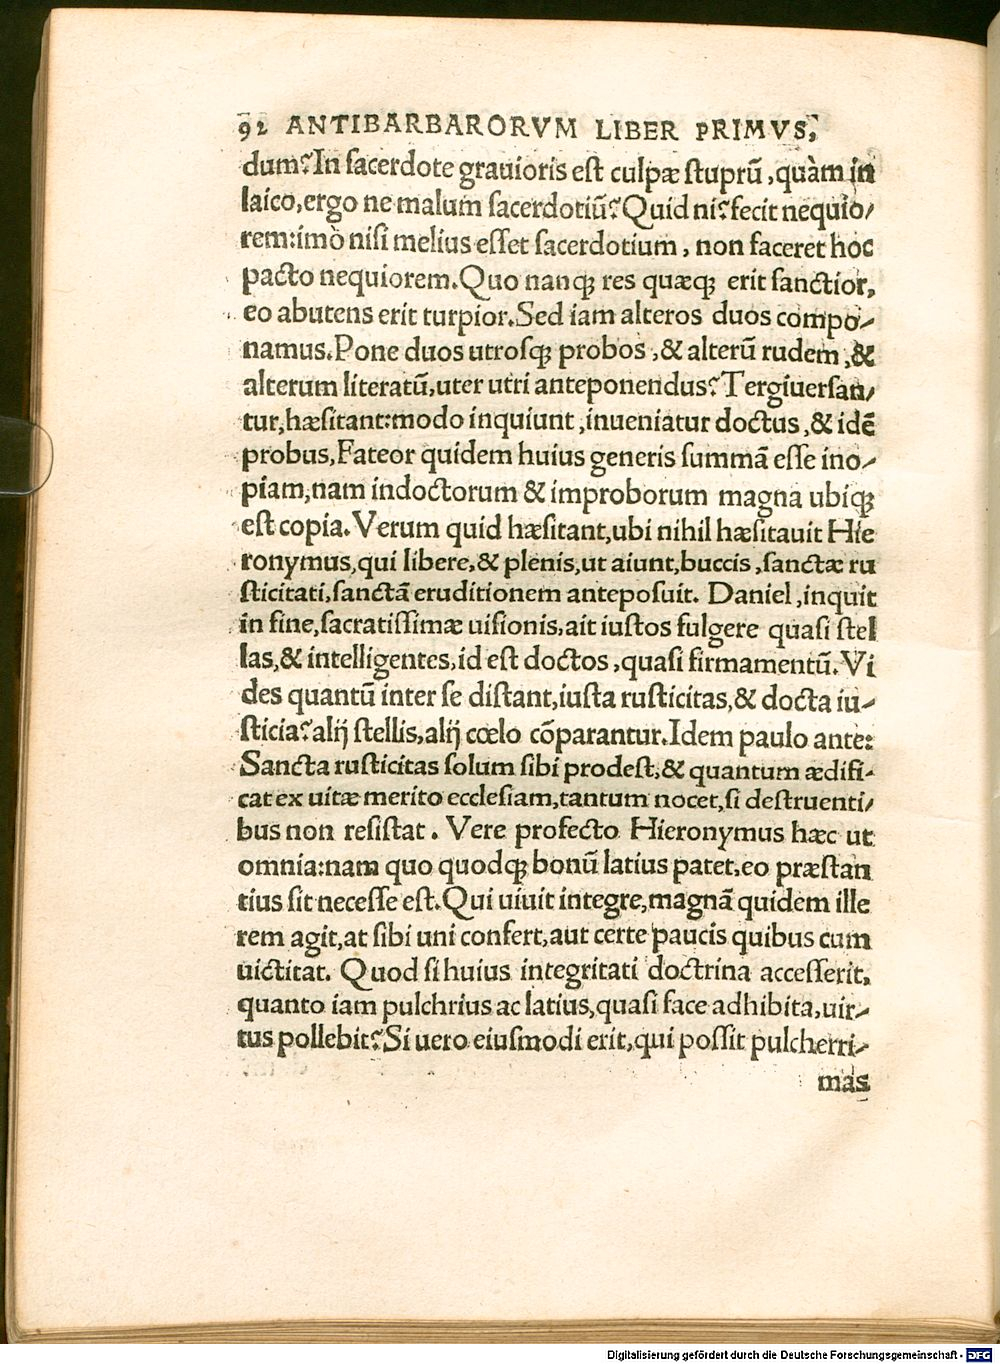 92 ANTIBARBARORVM LIBER PRIMVS,
dum? In ſacerdote grauioris eſt culpæ ſtuprũ, quàm in
laico, ergo ne malum ſacerdotiũ? Quid ni? fecit nequio/
rem: imò niſi melius eſſet ſacerdotium, non faceret hoc
pacto nequiorem. Quo nanqꝫ res quæqꝫ erit ſanctior,
eo abutens erit turpior. Sed iam alteros duos compo/
namus. Pone duos utroſqꝫ probos, & alterũ rudem, &
alterum literatũ, uter utri anteponendus? Tergiuerſan/
tur, hæſitant: modo inquiunt, inueniatur doctus, & idẽ
probus, Fateor quidem huius generis ſummã eſſe ino/
piam, nam indoctorum & improborum magna ubiqꝫ
eſt copia. Verum quid hæſitant, ubi nihil hæſitauit Hie
ronymus, qui libere, & plenis, ut aiunt, buccis, ſanctæ ru
ſticitati, ſanctã eruditionem anteposuit. Daniel, inquit
in fine, ſacratiſſimæ uiſionis, ait iuſtos fulgere quaſi ſtel
las, & intelligentes, id eſt doctos, quaſi firmamentũ. Vi
des quantũ inter ſe diſtant, iuſta ruſticitas, & docta iu/
ſticia? alij ſtellis, alij cœlo cõparantur. Idem paulo ante:
Sancta ruſticitas ſolum ſibi prodeſt, & quantum ædifi/
cat ex uitæ merito eccleſiam, tantum nocet, ſi deſtruenti/
bus non reſiſtat. Vere profecto Hieronymus hæc ut
omnia: nam quo quodqꝫ bonũ latius patet, eo præſtan
tius ſit neceſſe eſt. Qui uiuit integre, magnã quidem ille
rem agit, at ſibi uni confert, aut certe paucis quibus cum
uictitat. Quod ſi huius integritati doctrina acceſſerit,
quanto iam pulchrius ac latius, quaſi face adhibita, uir/
tus pollebit? Si uero eiuſmodi erit, qui poſſit pulcherri/
mas
Digitalisierung gefördert durch die Deutsche Forschungsgemeinschaft - DFG